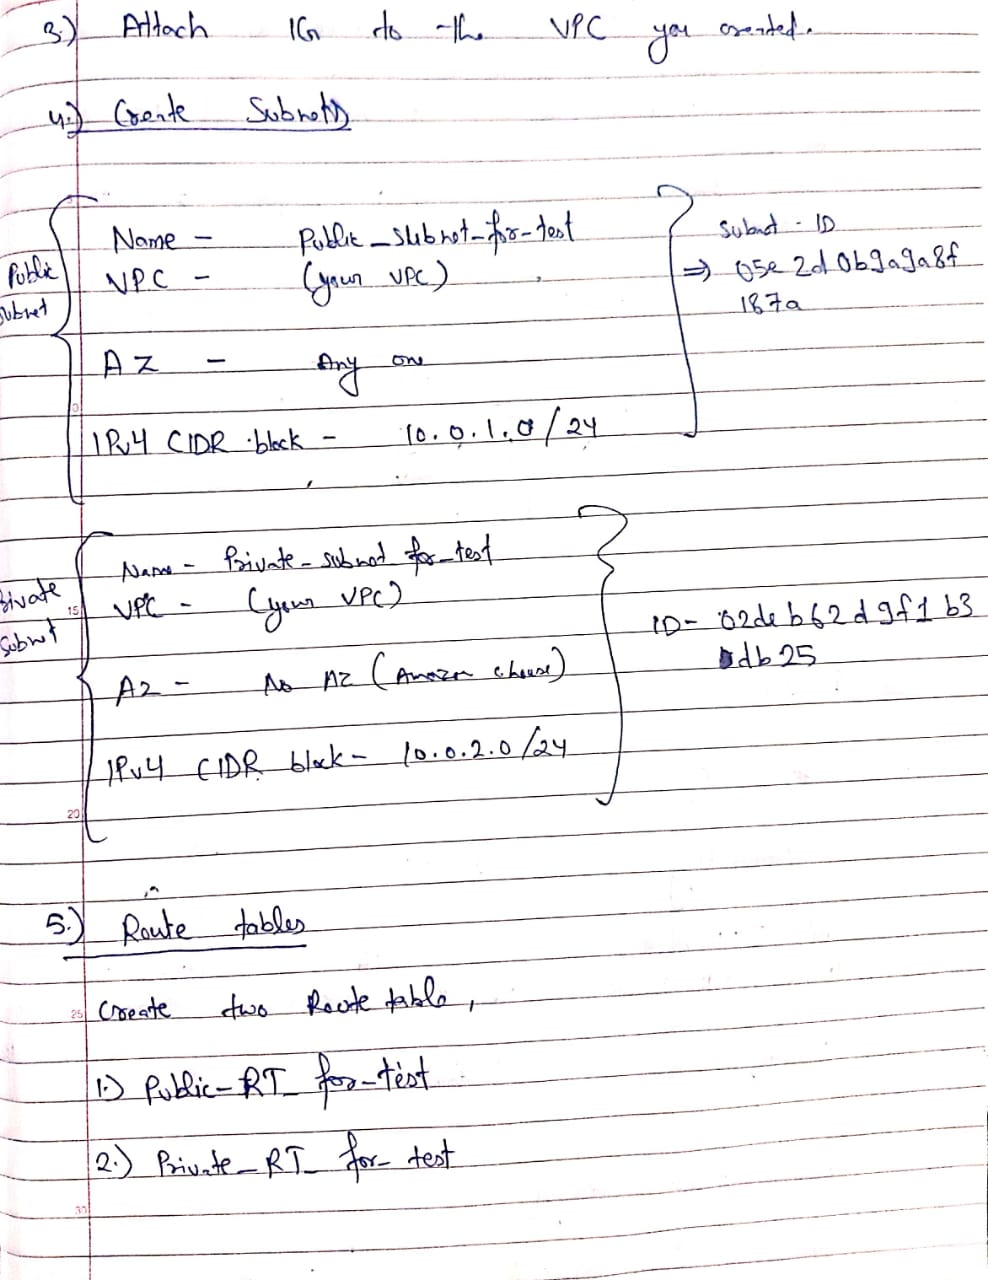 3.) Attach IG to the VPC you created.
4.) Create Subnets
Public Subnet
Name - Public_subnet_for-test
VPC - (your VPC)
AZ - Any one
IPv4 CIDR block - 10.0.1.0/24
Subnet - ID
⇒ 05e2d0b9a9a8f
187a
Private Subnet
Name - Private_subnet for_test
VPC - (your VPC)
AZ - No AZ (Amazon choose)
IPv4 CIDR block - 10.0.2.0/24
ID - 02deb62d9f1b3
db25
5.) Route tables
Create two Route table,
1.) Public-RT_for-test
2.) Private_RT_for_test
15
20
25
30